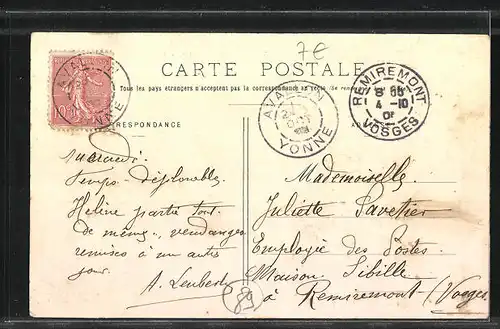 7€
CARTE POSTALE
Tous les pays étrangers n'acceptent pas la correspondance au recto
RESPONDANCE
AVALLON
YONNE
AVALLON
OCT
YONNE
REMIREMONT
4-10
VOSGES
Mercredi
Temps déplorable,
Hélène partie tout
de même, vendanges
remises à un autre
jour.
A. Leubert
Mademoiselle
Juliette Savetier
Employée des Postes
Maison Sibille
à Remiremont (Vosges)
89